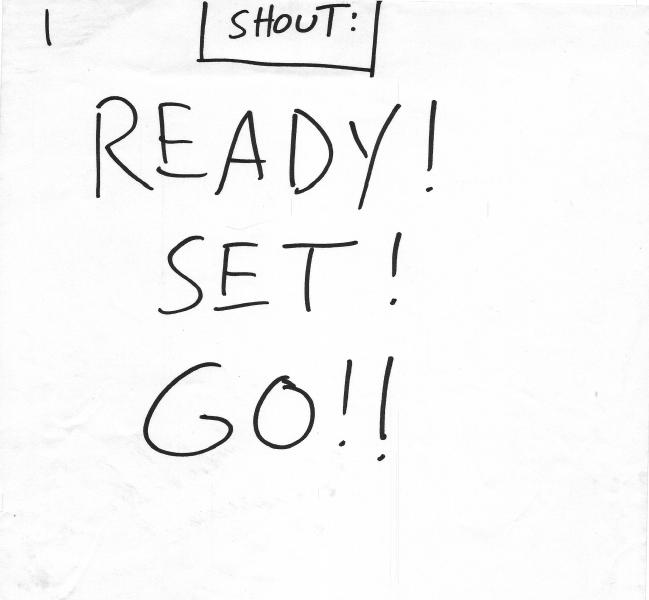 1 SHOUT:
READY!
SET!
GO!!